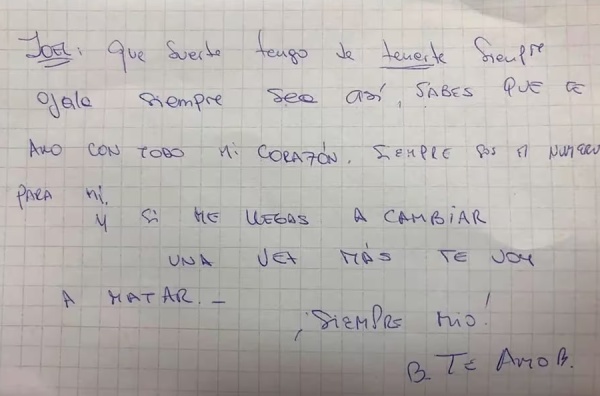 JOEL: que suerte tengo de tenerte siempre
ojala siempre sea así, SABES QUE TE
AMO CON TODO MI CORAZÓN. SIEMPRE SOS MI NUMERO
PARA MI.
Y SI ME LLEGAS A CAMBIAR
UNA VEZ MÁS TE VOY
A MATAR.-
¡SIEMPRE MIO!
B TE AMO B.